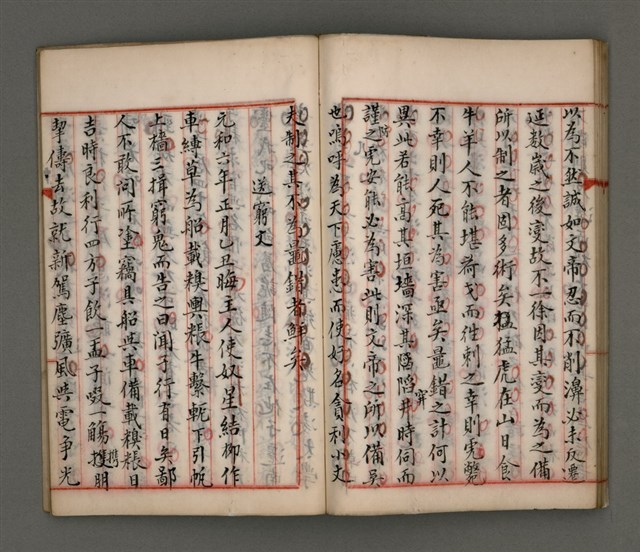 以為不然誠如文帝忍而不削濞必未反遷
延數歲之後變故不一徐因其變而為之備
所以制之者固多術矣猛猛虎在山日食
牛羊人不能堪荷戈而徃刺之幸則虎斃
不幸則人死其為害亟矣鼂錯之計何以
異此若能高其垣墻深其陷阱時伺而
穽
謹之虎安能必為害此則文帝之所以備吳
防
也嗚呼為天下慮患而使好名貪利小丈
夫制之其不為鼂錯者鮮矣
送窮文
元和六年正月乙丑晦主人使奴星結柳作
車縛草為船載糗輿粻牛繫軛下引帆
上檣三揖窮鬼而告之曰聞子行有日矣鄙
人不敢問所塗竊具船與車備載糗粻日
吉時良利行四方子飲一盂子啜一觴攜朋
携
挈儔去故就新駕塵彍風與電爭光